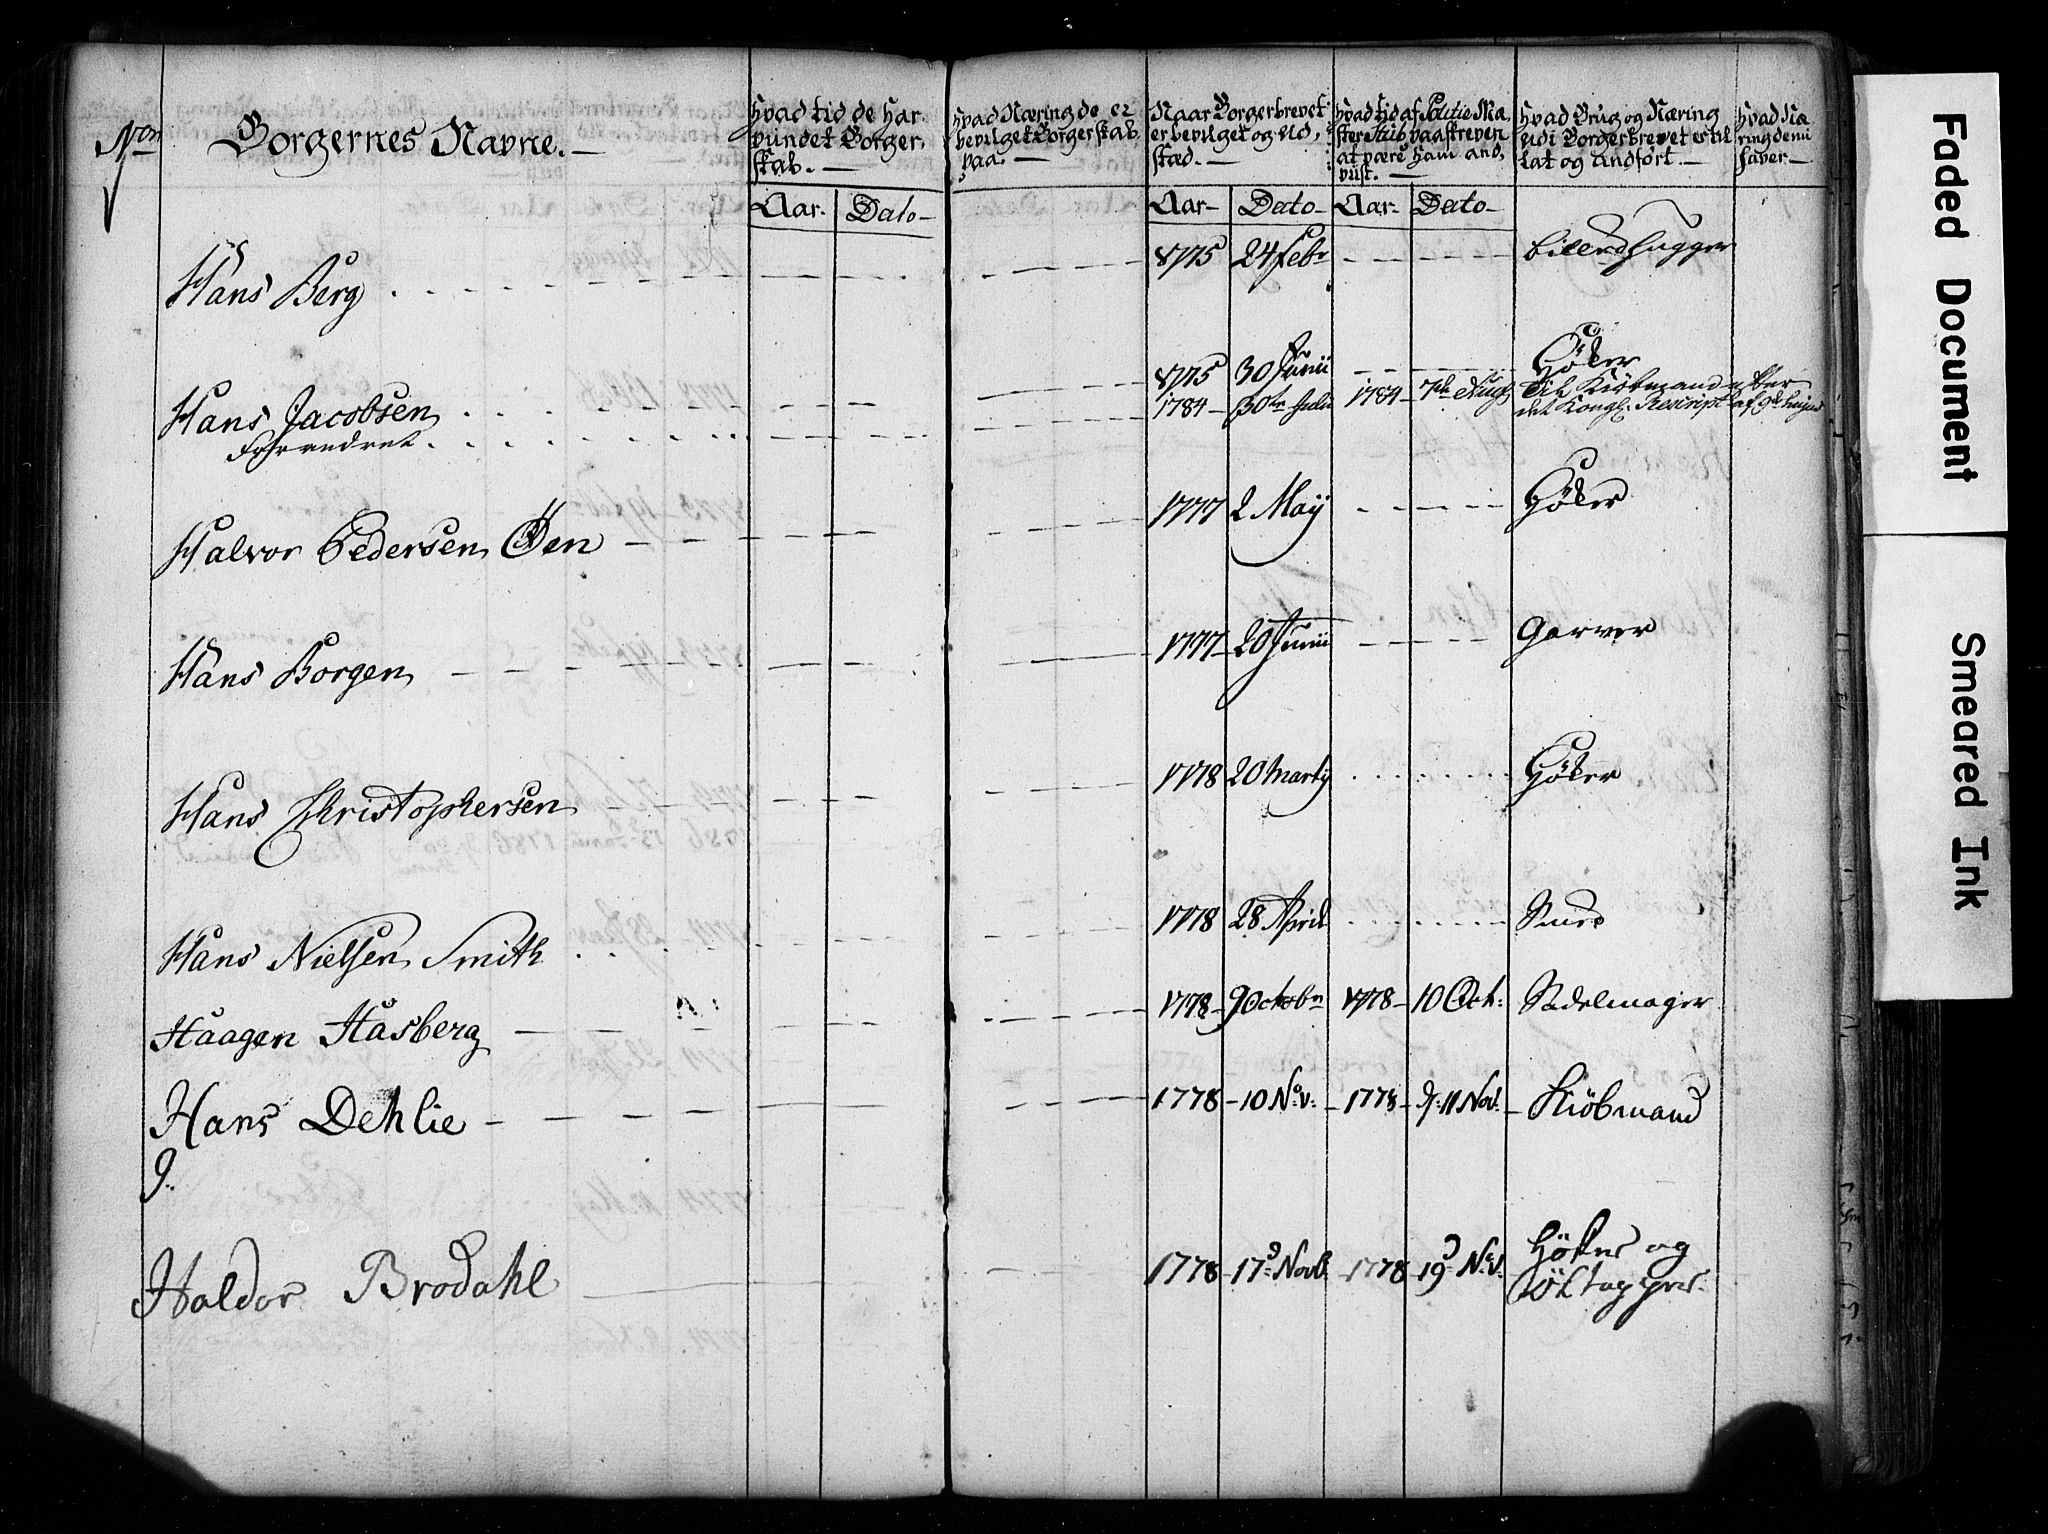 Non
Borgernes Navne. —
Hvad tid de har
vundet Borger,
skab. —
Hvad Næring de er
bevilget Borgerskab
paa. —
Naar Borgerbrevet
er bevilget og ud,
stæd. —
Hvad tid af Politie Ma,
ster Skib paaskreven
at være ham and,
viist. —
Hvad Brug og Næring
udi Borgerbrevet er til
lat og andført. —
Hvad Næ
ring de nu
haver —
Aar. Dato —
Aar — Dato — Aar. Dato —
Hans Berg 1775 24 Febr billedhugger
Hans Jacobsen 1775 30 Junii Höker
Forandret 1784 — 30te Julii 1784 — 7de Aug til Kiöbmand efter
det Kongl. Rescript af
Halvor Pedersen Öen 1777 2 Maij Höker
Hans Borgen 1777 — 20 Junii Garver
Hans Christophersen 1778 20 Martij Höker
Hans Nielsen Smith 1778 28 April
Haagen Haasberg 1778 — 9 Octobr 1778 — 10 Oct: Sadelmager
Hans Dehlie 1778 — 10 Nov: — 1778 — d: 11 Nov: — Kiöbmand
9.
Haldor Brodahl 1778 — 17d Novb. 1778 — 19d Nov. Höker og
Öltapper.
Faded Document
Smeared Ink